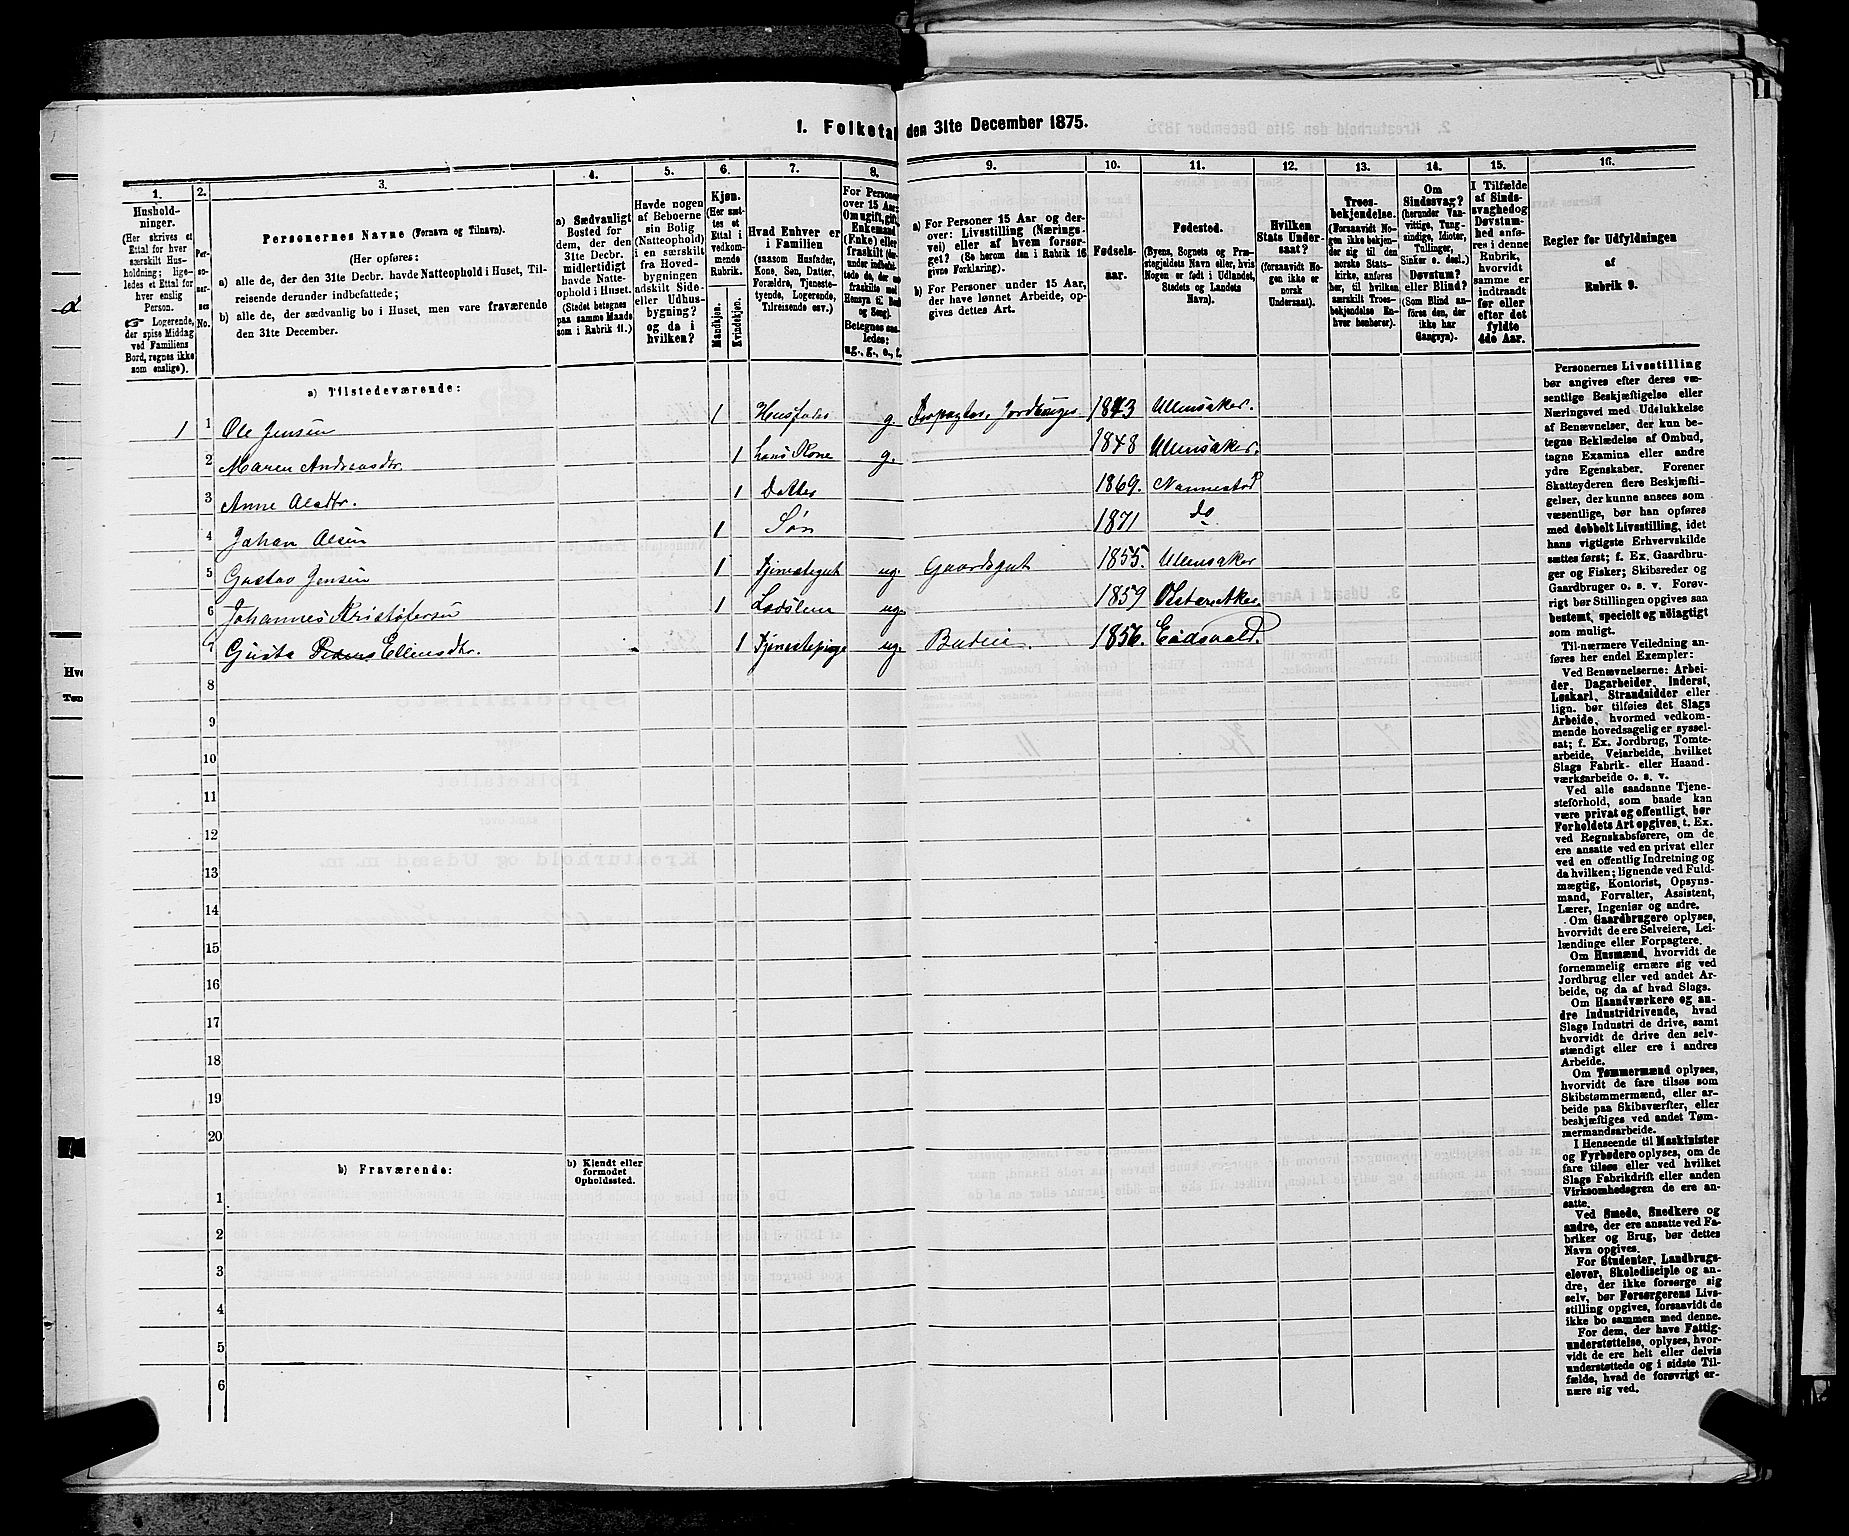 1. Folketal den 31te December 1875.
1.
2.
3.
4.
5.
6.
7.
8.
9.
10.
11.
12.
13.
14.
15.
16.
Hushold-
ninger.
(Her skrives et
Ettal for hver
særskilt Hus-
holdning; lige-
ledes et Ettal for
hver enslig
Person.
☞ Logerende,
der spise Middag
ved Familiens
Bord, regnes ikke
som enslige).
Per-
so-
ner-
nes
No.
Personernes Navne (Fornavn og Tilnavn).
(Her opføres:
a) alle de, der den 31te Decbr. havde Natteophold i Huset, Til-
reisende derunder indbefattede;
b) alle de, der sædvanlig bo i Huset, men vare fraværende
den 31te December.
a) Sædvanligt
Bosted for
dem, der den
31te Decbr.
midlertidigt
havde Natte-
ophold i Huset.
(Stedet betegnes
paa samme Maade
som i Rubrik 11.)
Havde nogen
af Beboerne
sin Bolig
(Natteophold)
i en særskilt
fra Hoved-
bygningen
adskilt Side-
eller Udhus-
bygning?
og da i
hvilken?
Kjøn.
(Her sæt-
tes et
Ettal i
vedkom-
mende
Rubrik.
Mandkjøn.
Kvindekjøn.
Hvad Enhver er
i Familien
(saasom Husfader,
Kone, Søn, Datter,
Forældre, Tjeneste-
tyende, Logerende,
Tilreisende osv.)
For Personer
over 15 Aar:
Om ugift, gift,
Enkemand
(Enke) eller
fraskilt
Betegnes saa-
ledes:
ug., g., e., f.
a) For Personer 15 Aar og der-
over: Livsstilling (Nærings-
vei) eller af hvem forsør-
get? (Se herom den i Rubrik 16
givne Forklaring).
b) For Personer under 15 Aar,
der have lønnet Arbeide, op-
gives dettes Art.
Fødsels-
aar.
Fødested.
(Byens, Sognets og Præ-
stegjeldets Navn eller, hvis
Nogen er født i Udlandet,
Stedets og Landets
Navn).
Hvilken
Stats Under-
saat?
(forsaavidt No-
gen ikke er
norsk
Undersaat).
Troes-
bekjendelse.
(Forsaavidt No-
gen ikke bekjen-
der sig til den
norske Stats-
kirke, anføres
her, til hvilken
særskilt Troes-
bekjendelse En-
hver henhører).
Om
Sindssvag?
(herunder Van-
vittige, Tung-
sindige, Idioter,
Tullinger,
Sinker o. desl.)
Døvstum?
eller Blind?
(Som Blind an-
føres den, der
ikke har
Gangsyn).
I Tilfælde
af Sinds-
svaghed og
Døvstum-
hed anfø-
res i denne
Rubrik,
hvorvidt
samme er
indtraadt
før eller
efter det
fyldte
4de Aar.
Regler for Udfyldningen
af
Rubrik 9.
a) Tilstedeværende:
1 1 Ole Jensen 1 Husfader g. Forpagter, Jordbruger 1843 Ullensaker.
2 Maren Andreasdtr. 1 hans Kone g. 1848 Ullensaker.
3 Anne Olesdtr. 1 Datter 1869. Nannestad
4 Johan Olsen 1 Søn 1871 do
5 Gustav Jensen 1 Tjenestegut ug. Gaardsgut 1855. Ullensaker
6 Johannes Kristofersen 1 ug. 1859
7 Gusta Ellensdtr. 1 Tjenestepige ug. Budeie. 1856. Eidsvold.
8
9
10
11
12
13
14
15
16
17
18
19
20
b) Fraværende:
b) Kjendt eller
formodet
Opholdssted.
1
2
3
4
5
6
Personernes Livsstilling
bør angives efter deres væ-
sentlige Beskjæftigelse eller
Næringsvei med Udelukkelse
af Benævnelser, der kun be-
tegne Beklædelse af Ombud,
tagne Examina eller andre
ydre Egenskaber. Forener
Skatteyderen flere Beskjæfti-
gelser, der kunne ansees som
væsentlige, bør han opføres
med dobbelt Livsstilling, idet
hans vigtigste Erhvervskilde
sættes først; f. Ex. Gaardbru-
ger og Fisker; Skibsreder og
Gaardbruger o. s. v. Forøv-
rigt bør Stillingen opgives saa
bestemt, specielt og nøiagtigt
som muligt.
Til-nærmere Veiledning an-
føres her endel Exempler:
Ved Benævnelserne: Arbei-
der, Dagarbeider, Inderst,
Løskarl, Strandsidder eller
lign. bør tilføies det Slags
Arbeide, hvormed vedkom-
mende hovedsagelig er syssel-
sat; f. Ex. Jordbrug, Tomte-
arbeide, Veiarbeide, hvilket
Slags Fabrik- eller Haand-
værksarbeide o. s. v.
Ved alle saadanne Tjene-
steforhold, som baade kan
være privat og offentligt, bør
Forholdets Art opgives, t. Ex.
ved Regnskabsførere, om de
ere ansatte ved en privat eller
ved en offentlig Indretning og
da hvilken; lignende ved Fuld-
mægtig, Kontorist, Opsyns-
mand, Forvalter, Assistent,
Lærer, Ingeniør og andre.
Om Gaardbrugere oplyses,
hvorvidt de ere Selveiere, Lei-
lændinge eller Forpagtere.
Om Husmænd, hvorvidt de
fornemmelig ernære sig ved
Jordbrug eller ved andet Ar-
beide, og da af hvad Slags.
Om Haandværkere og an-
dre Industridrivende, hvad
Slags Industri de drive, samt
hvorvidt de drive den selv-
stændigt eller ere i andres
Arbeide.
Om Tømmermænd oplyses,
hvorvidt de fare tilsøs som
Skibstømmermænd, eller ar-
beide paa Skibsværfter, eller
beskjæftiges ved andet Tøm-
mermandsarbeide.
I Henseende til Maskinister
og Fyrbødere oplyses, om de
fare tilsøs eller ved hvilket
Slags Fabrikdrift eller anden
Virksomhedsgren de ere an-
satte.
Ved Smede, Snedkere og
andre, der ere ansatte ved Fa-
briker og Brug, bør dettes
Navn opgives.
For Studenter, Landbrugs-
elever, Skoledisciple og an-
dre, der ikke forsørge sig
selv, bør Forsørgerens Livs-
stilling opgives, forsaavidt de
ikke bo sammen med denne.
For dem, der have Fattig-
understøttelse, oplyses, hvor-
vidt de ere helt eller delvis
understøttede og i sidste Til-
fælde, hvad de forøvrigt er-
nære sig ved.